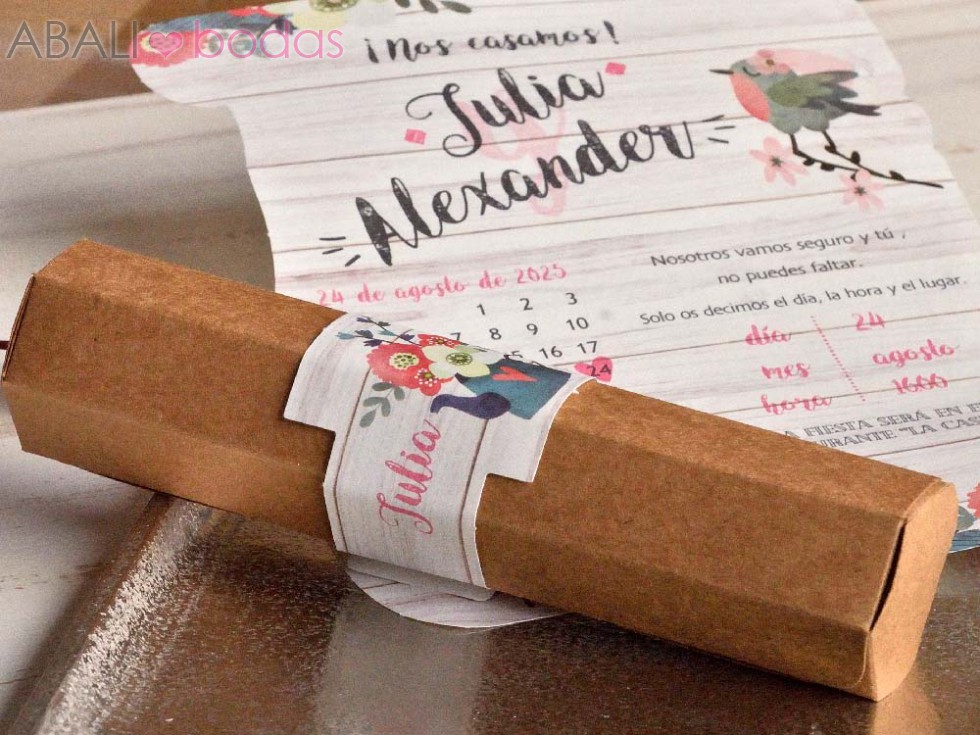 ABALI bodas
¡Nos casamos!
Julia
Alexander
24 de agosto de 2025
1 2 3
7 8 9 10
16 17
24
Nosotros vamos seguro y tú,
no puedes faltar.
Solo os decimos el día, la hora y el lugar.
día 24
mes agosto
hora 1600
FIESTA SERÁ EN
"LA
Julia